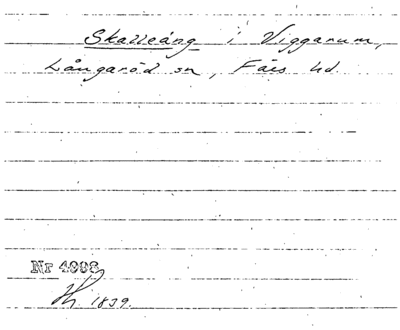 Skalleäng i Viggarum,
Långaröd sn, Färs hd.
Nr 4998
1839.